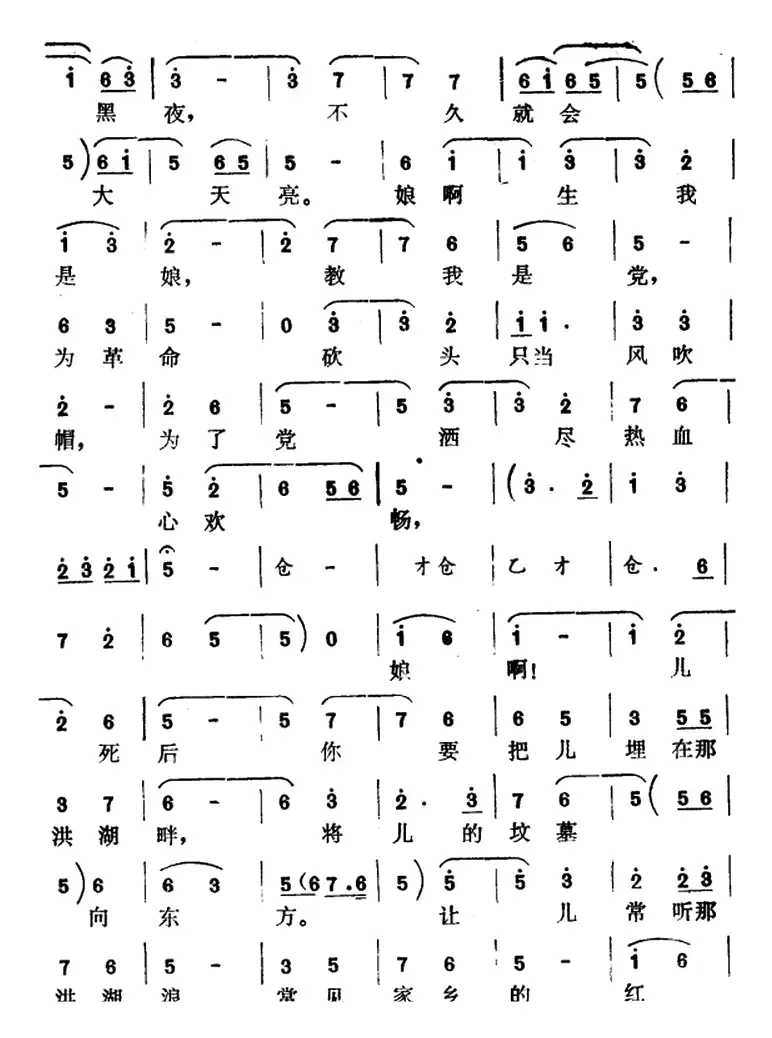 i 6 3 | 3 - | 3 7 | 7 7 | 6 i 6 5 | 5 ( 5 6 |
黑夜，不久就会
5 ) 6 i | 5 6 5 | 5 - | 6 i | i 3 | 3 2 |
大天亮。娘啊生我
i 3 | 2 - | 2 7 | 7 6 | 5 6 | 5 - |
是娘，教我是党，
6 3 | 5 - | 0 3 | 3 2 | i i · | 3 3 |
为革命砍头只当风吹
2 - | 2 6 | 5 - | 5 3 | 3 2 | 7 6 |
帽，为了党洒尽热血
5 - | 5 2 | 6 5 6 | 5 - | ( 3 · 2 | i 3 |
心欢畅，
2 3 2 i | 5 - | 仓 - | 才仓 | 乙才 | 仓 · 6 |
7 2 | 6 5 | 5 ) 0 | i 6 | i - | i 2 |
娘啊！儿
2 6 | 5 - | 5 7 | 7 6 | 6 5 | 3 5 5 |
死后你要把儿埋在那
3 7 | 6 - | 6 3 | 2 · 3 | 7 6 | 5 ( 5 6 |
洪湖畔，将儿的坟墓
5 ) 6 | 6 3 | 5 ( 6 7 · 6 | 5 ) 5 | 5 3 | 2 2 3 |
向东方。让儿常听那
7 6 | 5 - | 3 5 | 7 6 | 5 - | i 6 |
洪湖浪常见家乡的红